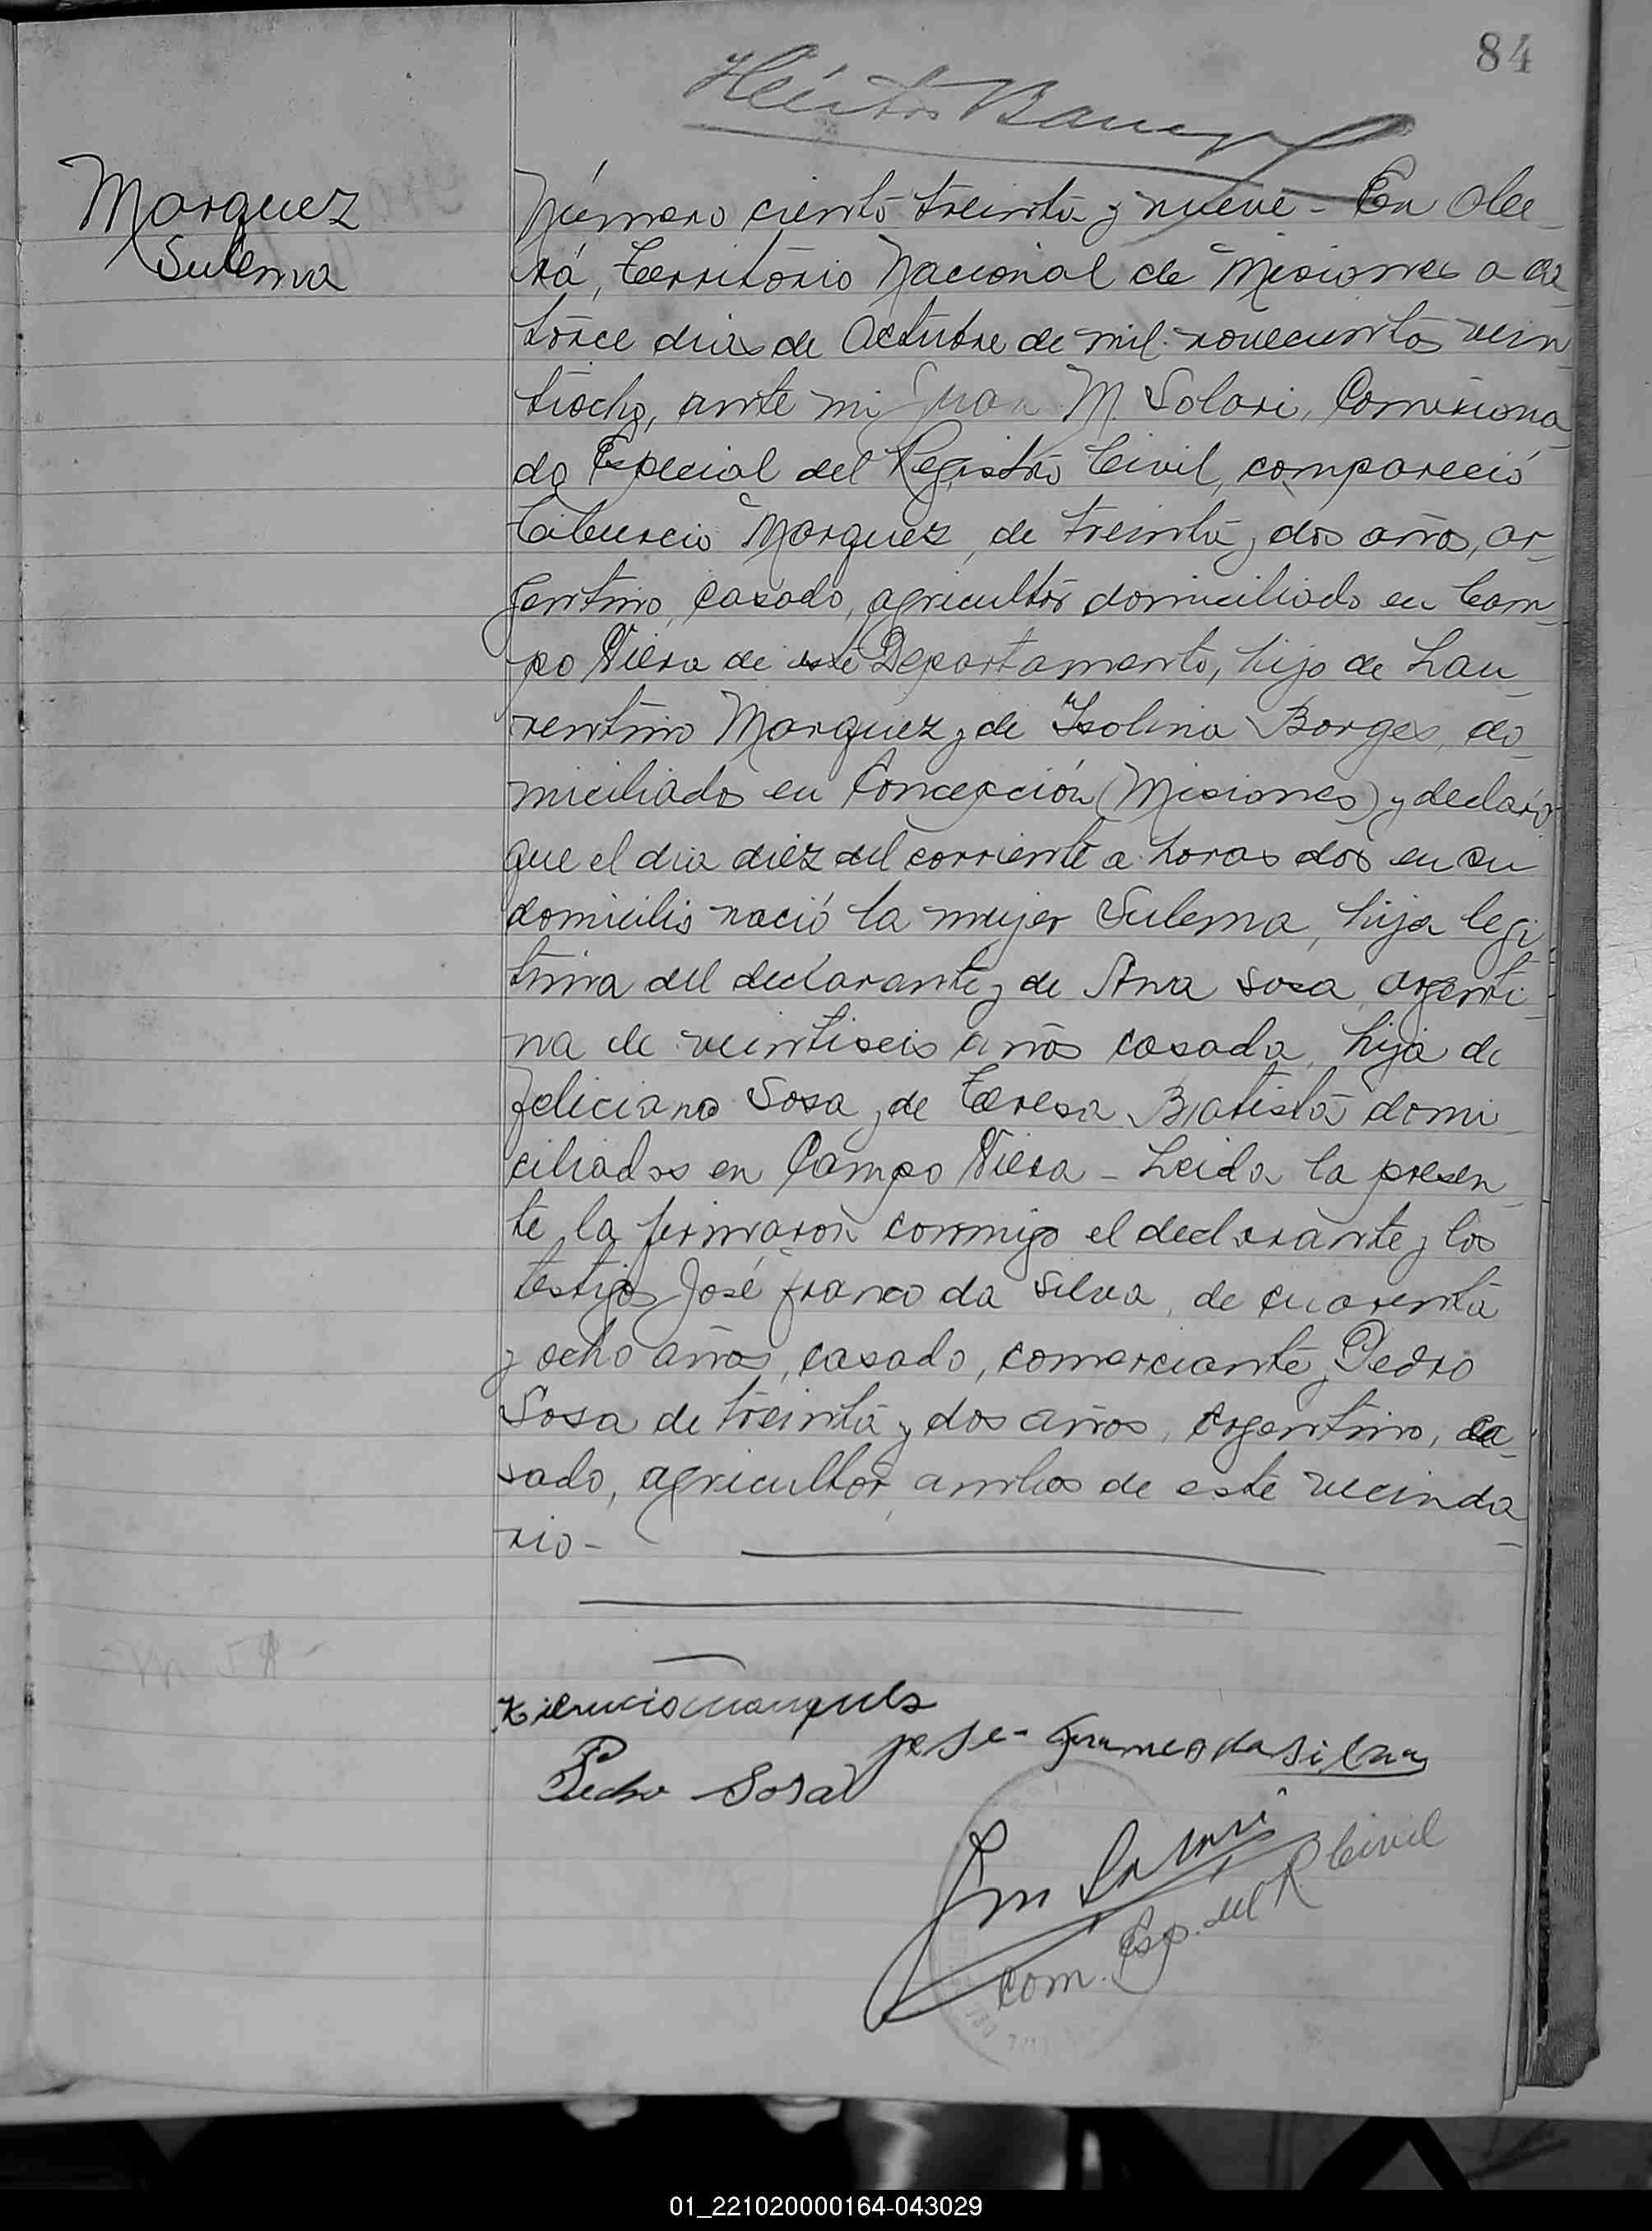 84
Héctor
Marquez
Sulema
Número ciento treinta y nueve - En Obe-
rá, Territorio Nacional de Misiones a ca-
torce dias de Octubre de mil novecientos vein-
tiocho, ante mi Juan M. Solari, Comisiona-
do Especial del Registro Civil, compareció
Tiburcio Marquez, de treinta y dos años, ar-
gentino, casado, agricultor domiciliado en Cam-
po Viera de este Departamento, hijo de Lau-
rentino Marquez y de Isolina Borges, do-
miciliados en Concepción (Misiones) y declaró
que el dia diez del corriente a horas dos en su
domicilio nació la mujer Sulema, hija legi-
tima del declarante y de Ana Sosa, argenti-
na de veintiseis años casada, hija de
Feliciano Sosa y de Teresa Batista domi-
ciliados en Campo Viera - Leida la presen-
te la firmaron conmigo el declarante y los
testigos José Franco da Silva, de cuarenta
y ocho años, casado, comerciante y Pedro
Sosa de treinta y dos años, argentino, ca-
sado, agricultor, ambos de este vecinda-
rio -
Tiburcio marques
jose - Franco da Silva
Pedro Sosa
Jm Solari
Com. Esp. del R. Civil
01_221020000164-043029